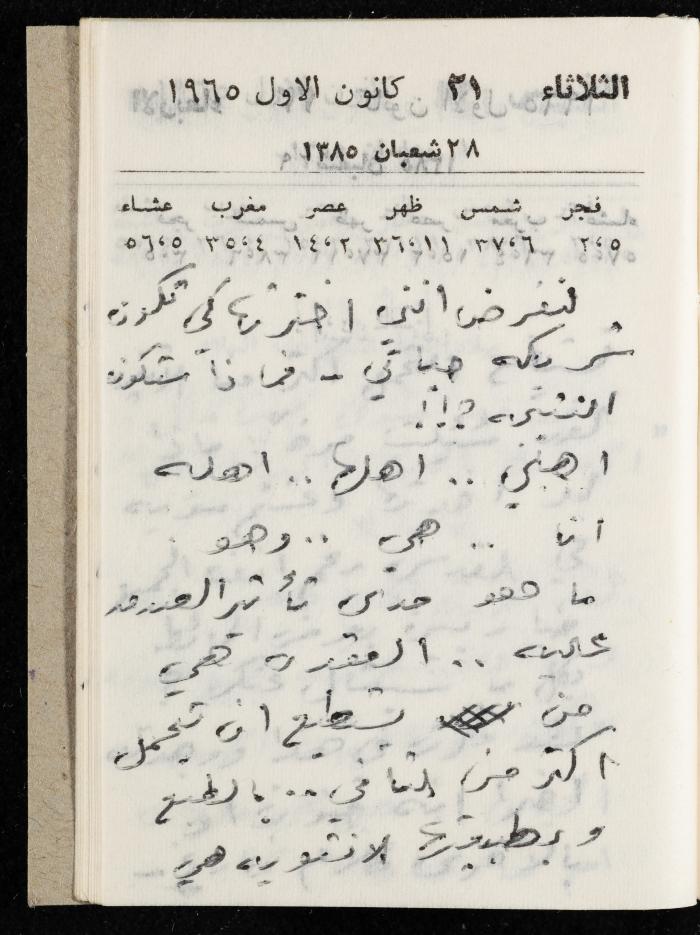 الثلاثاء ٢١ كانون الاول ١٩٦٥
٢٨ شعبان ١٣٨٥
فجر شمس ظهر عصر مغرب عشاء
٢،٥ ٣٧،٦ ٣٦،١١ ١٤،٢ ٣٥،٤ ٥٦،٥
لنفرض انني اخترتها كي تكون
شريكة حياتي - فماذا ستكون
النتيجة ؟!!
اهلي .. اهلها .. اهله
انا .. هي .. وهو
ما هو مدى تأثير
عليه .. المقدرة هي
من تستطيع ان تتحمل
اكثر من الثاني .. بالطبع
هي